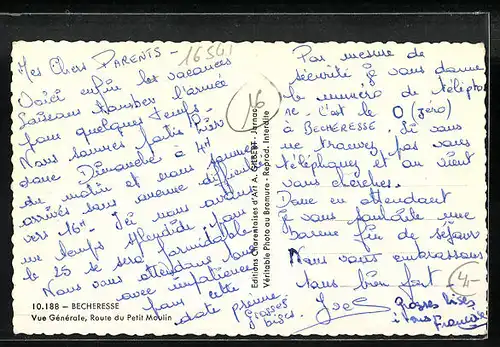 16541
Mes Chers PARENTS -
Voici enfin les vacances
Laissons tomber l'année
pour quelques temps.
Nous sommes partis
donc Dimanche à 4H
du matin et nous sommes
arrivés sans aucune difficulté
vers 16H. Ici nous avons
un temps splendide, pour
le 25 ce sera formidable
Nous vous attendons tous
avec impatience
pour cette
date
grosses
bises.
10.188 — BECHERESSE
Vue Générale, Route du Petit Moulin
Editions Charentaises d'Art A. GILBERT - Jarnac
Véritable Photo au Bromure - Reprod. Interdite
Par mesure de
sécurité je vous donne
le numéro de télépho
ne. C'est le 0 (zéro)
à BECHERESSE. Si vous
ne trouvez pas vous
téléphonez et on vient
vous chercher.
Donc en attendant
je vous souhaite une
bonne fin de séjour
Nous vous embrassons
tous bien fort.
Yves
4,-
grosses bises
à tous
Francine